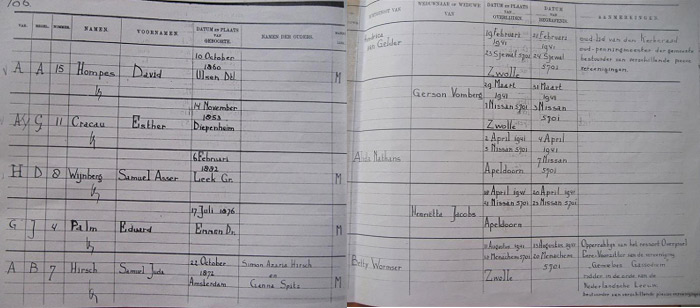 106
VAK. REGEL. NUMMER. NAMEN. VOORNAMEN. DATUM en PLAATS VAN GEBOORTE. NAMEN DER OUDERS.
A A 15 Hompes David 10 October
1860
Ulsen Dld M
G 11 Cracau Esther 14 November
1853
Diepenheim
H D 8 Wijnberg Samuel Asser 6 Februari
1882
Leek Gr. M
G J 4 Palm Eduard 17 Juli 1876
Emmen Dr. M
A B 7 Hirsch Samuel Juda 22 October
1872
Amsterdam Simon Azaria Hirsch
en
Ganna Spitz M
WEDUWNAAR of WEDUWE VAN DATUM en PLAATS VAN OVERLIJDEN. DATUM VAN BEGRAVEN. AANMERKINGEN.
van Gelder 19 februari
1941
23 Sjewat 5701
Zwolle 21 Februari
1941
24 Sjewat
5701 oud lid van den Kerkeraad
oud-penningmeester der gemeente
bestuurder van verschillende pieuze
vereenigingen.
Gerson Vomberg 29 Maart
1941
1 Nissan 5701
Zwolle 31 Maart
1941
3 Nissan
5701
Alida Nathans 2 April 1941
5 Nissan 5701
Apeldoorn 4 April
1941
7 Nissan
5701
Henriette Jacobs April 1941
Nissan 5701
Apeldoorn 20 April 1941
23 Nissan 5701
Betty Wormser 11 Augustus 1941
18 Menachem 5701
Zwolle 13 Augustus 1941
20 Menachem
5701 Opperrabbijn van het ressort Overijssel
Eere-Voorzitter van de vereeniging
"Gemiloes Gasodiem"
ridder in de orde van den
Nederlandsche Leeuw
bestuurder van verschillende pieuze vereenigingen